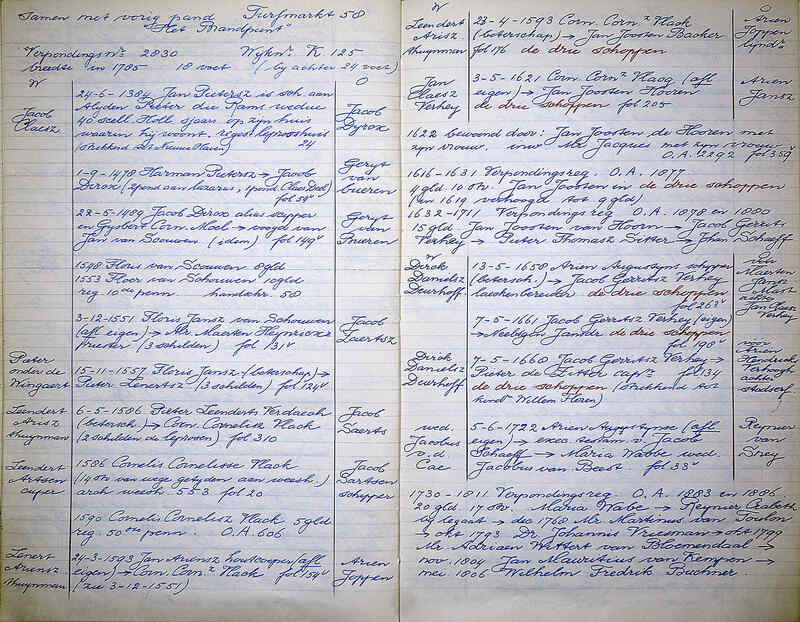 Samen met vorig pand Turfmarkt 58
"Het Brandpunt"
Verpondings nr. 2830 Wijk nr. K 125
breedte in 1785 18 voet (bij achter 24 voet)
W O
Jacob Claesz
24-6-1384 Jan Pietersz is sch. aan
40 scell. Holl. sjaars op zijn huis
waarin hij woont. regest leprooshuis
24
Jacob Dyrox
1-9-1478 Harman Pietersz → Jacob
Dirox (2pond aan lazarus, 1pond Claes Doel)
fol 54v
Geryt van bueren
22-5-1489 Jacob Dirox alias
en Gysbert Corn. Moel → voogd van
Jan van Scouwen (idem) fol 149v
Geryt van Bueren
1548 Floris van Scouwen 8gld
1553 Floor van Schouwen 10gld
reg 10de penn. handschr. 58
3-12-1551 Floris Jansz van Schouwen
(afl eigen) → Mr. Maerten
Priester (3 schilden) fol 131v
Jacob Laertsz
Pieter onder de Wingaert
15-11-1557 Floris Jansz (beterschap) →
Pieter Lenertsz (3 schilden) fol 124v
Leendert Arisz thuynman
6-5-1586 Pieter Leenderts Verdaech
(betersch.) → Corn. Cornelisse Vlack
(2 schilden de leprosen) fol 310
Jacob Saerts
Leendert Artsen cuper
1586 Cornelis Cornelisse Vlack
(14 st van wege getyden aen weesh.)
arch weesh. 553 fol 20
Jacob Sartsen schipper
1590 Cornelis Cornelisz Vlack 5gld
reg. 50ste penn. O.A. 606
Lenert Ariensz thuynman
24-3-1593 Jan Ariensz houtcooper (afl
eigen) → Corn. Corn.z Vlack fol 154v
(zie 3-12-1551)
Arien Joppen
W O
Leendert Arisz thuynman
23-4-1593 Corn. Corn.z Vlack
(beterschap) → Jan Joosten Backer
fol 176 de drie schoppen
Arien Joppen lyndr.
Jan Claesz Verhey
3-5-1621 Corn. Corn.z Vlaog (afl
eigen) → Jan Joosten Hooren
de drie schoppen fol 205
Arien Jansz
1622 bewoond door: Jan Joosten de Hooren met
zijn vrouw. inw. Mr. Jacques met zijn vrouw
O.A. 2292 fol 359
1616-1631 Verpondingsreg. O.A. 1877
4 gld 10 st. Jan Joosten in de drie schoppen
(in 1619 verhoogd tot 9 gld)
1632-1711 Verpondings reg O.A. 1878 en 1880
15 gld Jan Joosten van Hoorn → Jacob Gerrits
Verhey → Pieter Thomasz Sitter → Johan Schaeff
W
Dirck Danielsz Deurhoff
13-5-1658 Arien Augustyns schipper
(betersch.) → Jacob Gerritsz Verhey
laeckenbereider de drie schoppen
fol 263v
7-5-1661 Jacob Gerritsz Verhey (eigen)
→ Neeltgen Jansdr de drie schoppen
fol 190v
Dirck Danielsz Deurhoff
7-5-1660 Jacob Gerritsz Verhey →
Pieter de Sitter capt. fol 134
de drie schoppen (strekkende tot
Willem Floren)
voor Arien Hendricksz Verhooght achter stadserf.
wed. Jacobus v.d. Cae
5-6-1722 Arien Augustynse (afl
eigen) → exec. testam. v. Jacob
Schaeff → Maria Wabbe wed.
Jacobus van Beest fol 33v
Reynier van Drey
1730-1811 Verpondingsreg. O.A. 1883 en 1886
20 gld. 17 st. Maria Wabe → Reynier Crabeth
bij legaat → dec 1768 Mr. Martinus van Toulon
→ okt 1793 Dr Johannis Vreesman → okt 1799
Mr Adriaen Wittert van Bloemendaal →
nov. 1804 Jan Mauritius van Kempen →
mei 1806 Wilhelm Fredrik Buchner.